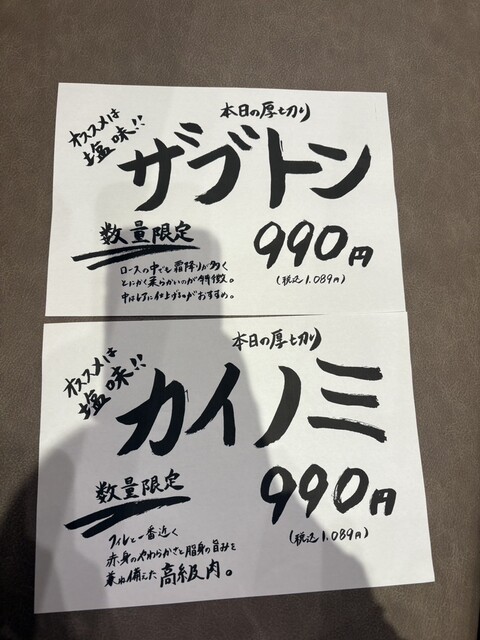 オススメは
塩味!!
本日の厚切り
ザブトン
数量限定
990円
(税込1.089円)
ロースの中でも霜降りが多く
とにかく柔らかいのが特徴。
中はレアに仕上げるのがおすすめ。
オススメは
塩味!!
本日の厚切り
カイノミ
数量限定
990円
(税込1.089円)
フィレと一番近く
赤身のやわらかさと脂身の旨みを
兼ね備えた高級肉。